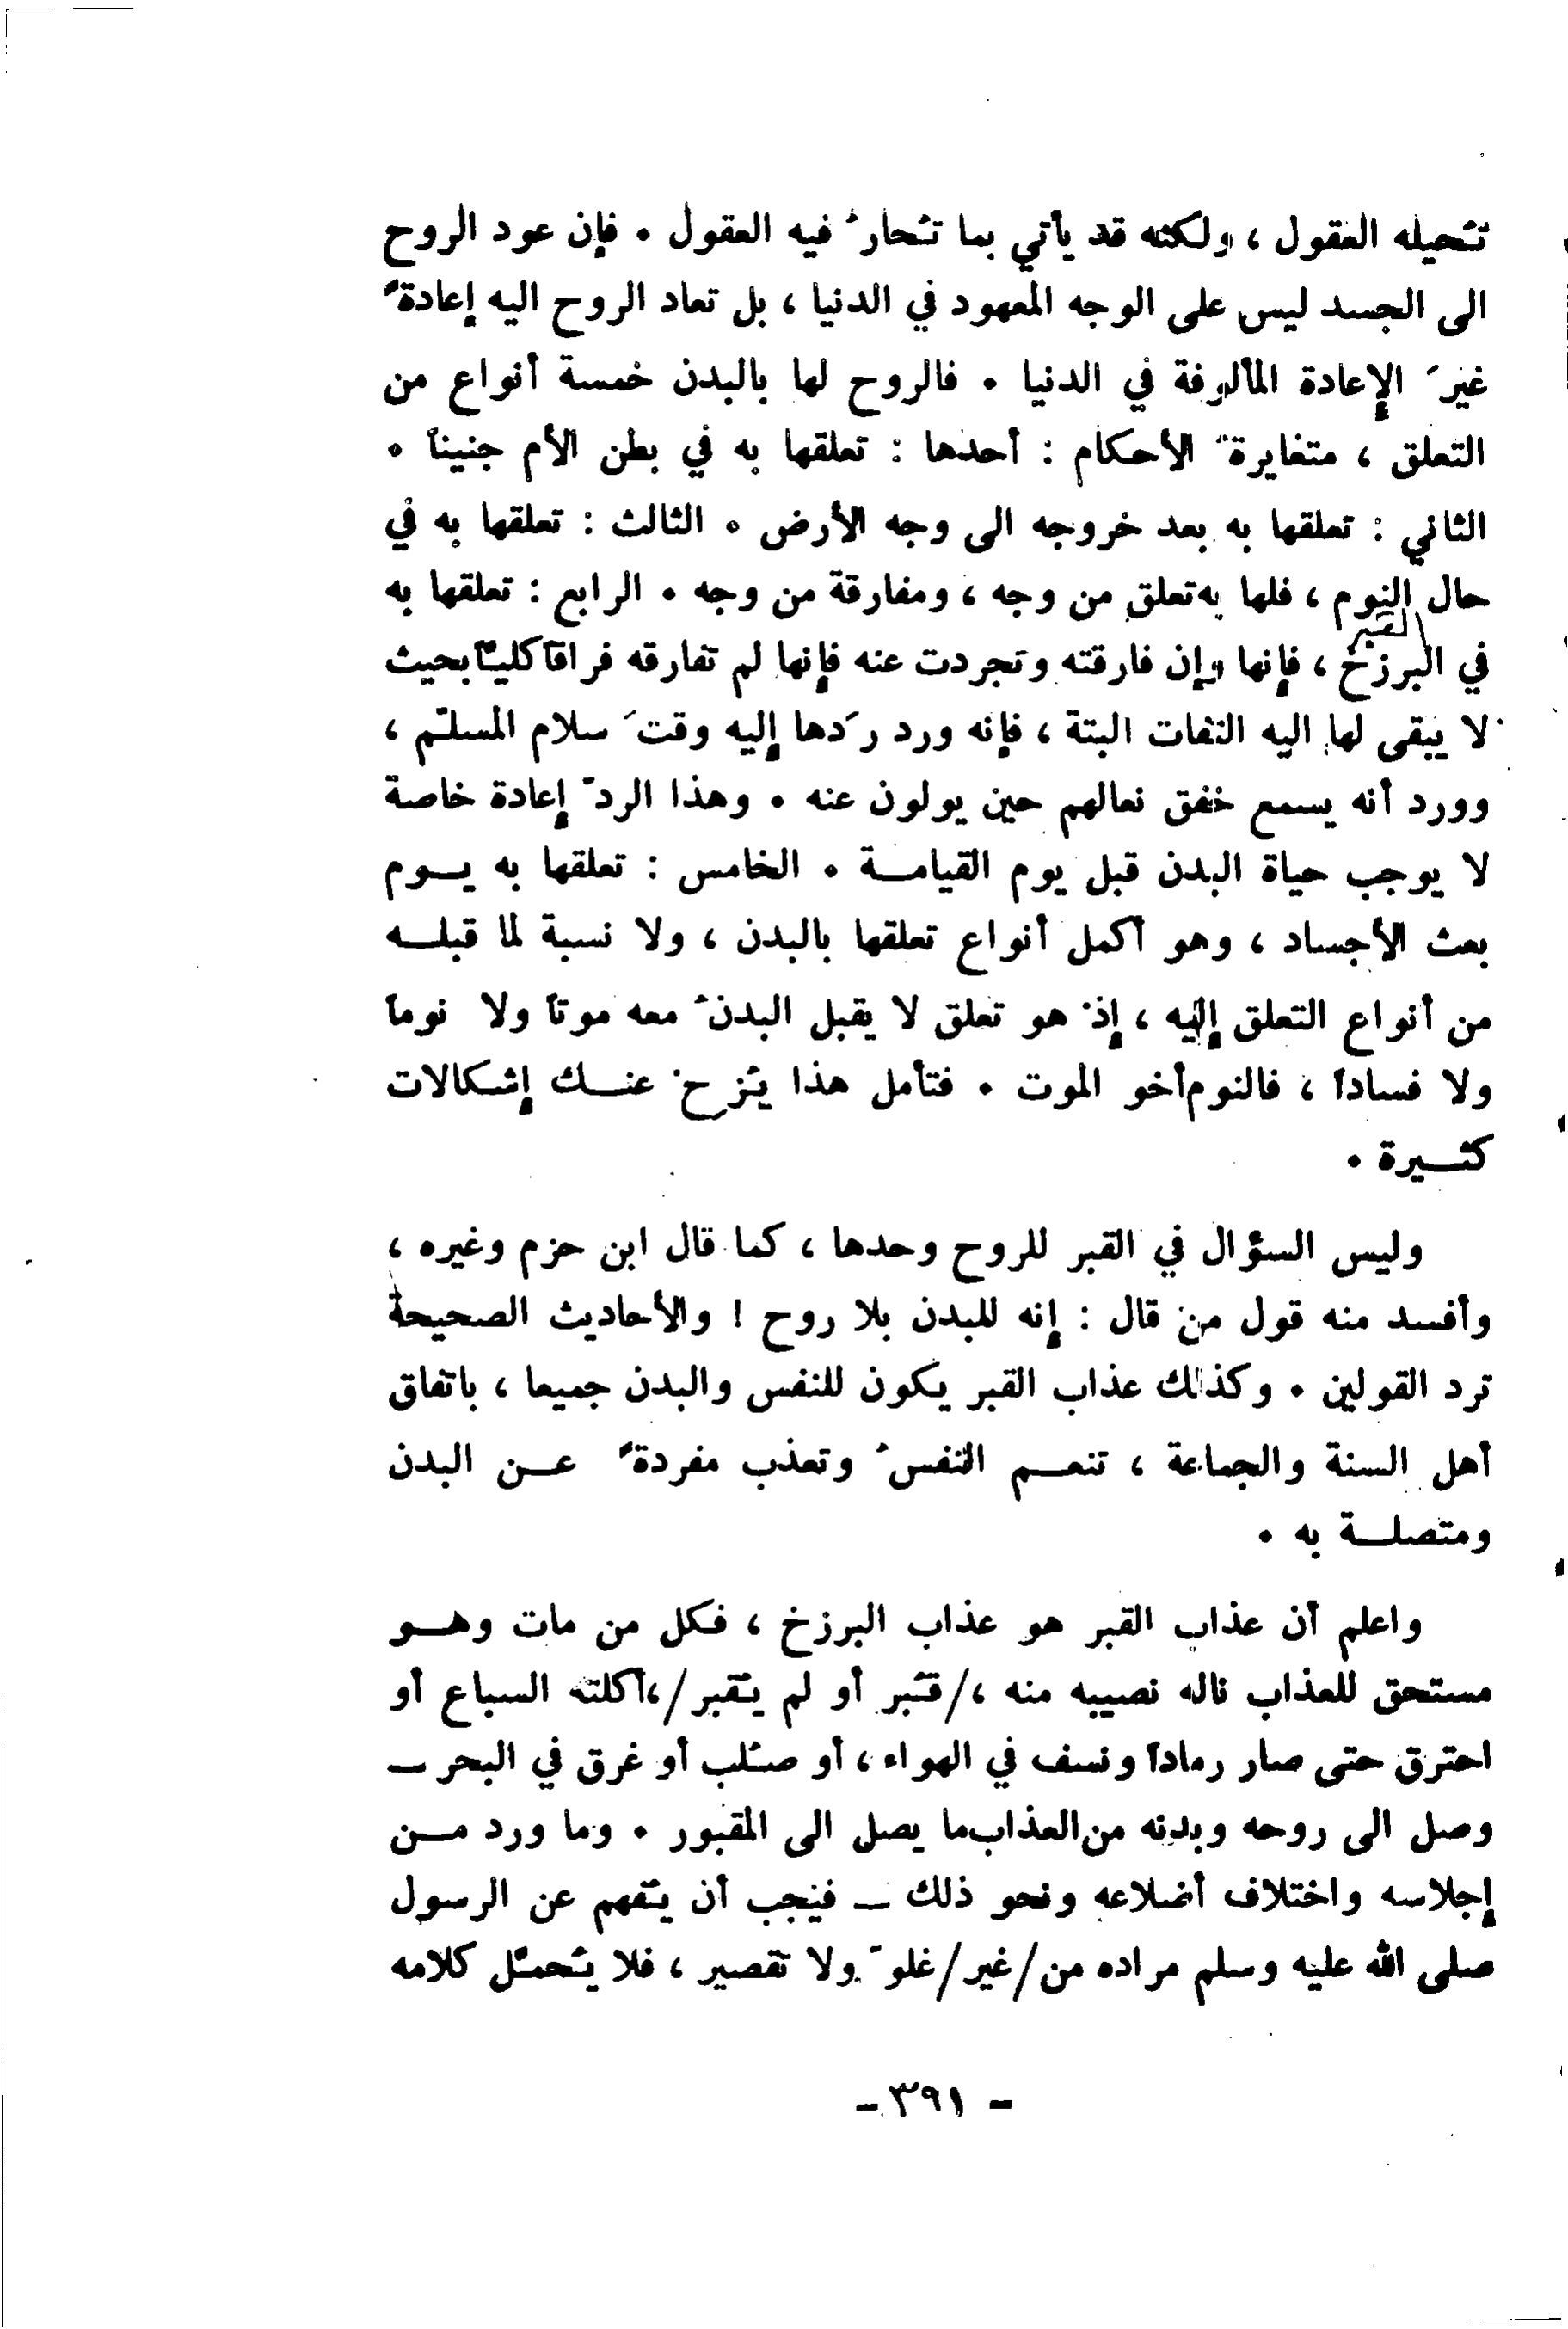 تُحيله العقول ، ولكنه قد يأتي بما تُحارُ فيه العقول . فإن عود الروح
الى الجسد ليس على الوجه المعهود في الدنيا ، بل تعاد الروح اليه إعادةً
غيرَ الإعادة المألوفة في الدنيا . فالروح لها بالبدن خمسة أنواع من
التعلق ، متغايرةَ الأحكام : أحدها : تعلقها به في بطن الأم جنيناً .
الثاني : تعلقها به بعد خروجه الى وجه الأرض . الثالث : تعلقها به في
حال النوم ، فلها به تعلق من وجه ، ومفارقة من وجه . الرابع : تعلقها به
القبر
في البرزخ ، فإنها وإن فارقته وتجردت عنه فإنها لم تفارقه فراقاً كلياً بحيث
لا يبقى لها اليه التفات البتة ، فإنه ورد رَدها إليه وقتَ سلام المسلّم ،
وورد أنه يسمع خفق نعالهم حين يولون عنه . وهذا الردّ إعادة خاصة
لا يوجب حياة البدن قبل يوم القيامة . الخامس : تعلقها به يوم
بعث الأجساد ، وهو أكمل أنواع تعلقها بالبدن ، ولا نسبة لما قبله
من أنواع التعلق إليه ، إذْ هو تعلق لا يقبل البدنُ معه موتاً ولا نوماً
ولا فساداً ، فالنوم أخو الموت . فتأمل هذا يُزِحْ عنك إشكالات
كثيرة .
وليس السؤال في القبر للروح وحدها ، كما قال ابن حزم وغيره ،
وأفسد منه قول من قال : إنه للبدن بلا روح ! والأحاديث الصحيحة
ترد القولين . وكذلك عذاب القبر يكون للنفس والبدن جميعا ، باتفاق
أهل السنة والجماعة ، تنعم النفسُ وتعذب مفردةً عن البدن
ومتصلة به .
واعلم أن عذاب القبر هو عذاب البرزخ ، فكل من مات وهو
مستحق للعذاب ناله نصيبه منه ،/قُبر أو لم يُقبر/،أكلته السباع أو
احترق حتى صار رماداً ونسف في الهواء ، أو صُلب أو غرق في البحر –
وصل الى روحه وبدنه من العذاب ما يصل الى المقبور . وما ورد من
إجلاسه واختلاف أضلاعه ونحو ذلك – فيجب أن يُفهم عن الرسول
صلى الله عليه وسلم مراده من/غير/غلوّ ولا تقصير ، فلا يُحمّل كلامه
- ٣٩١ -